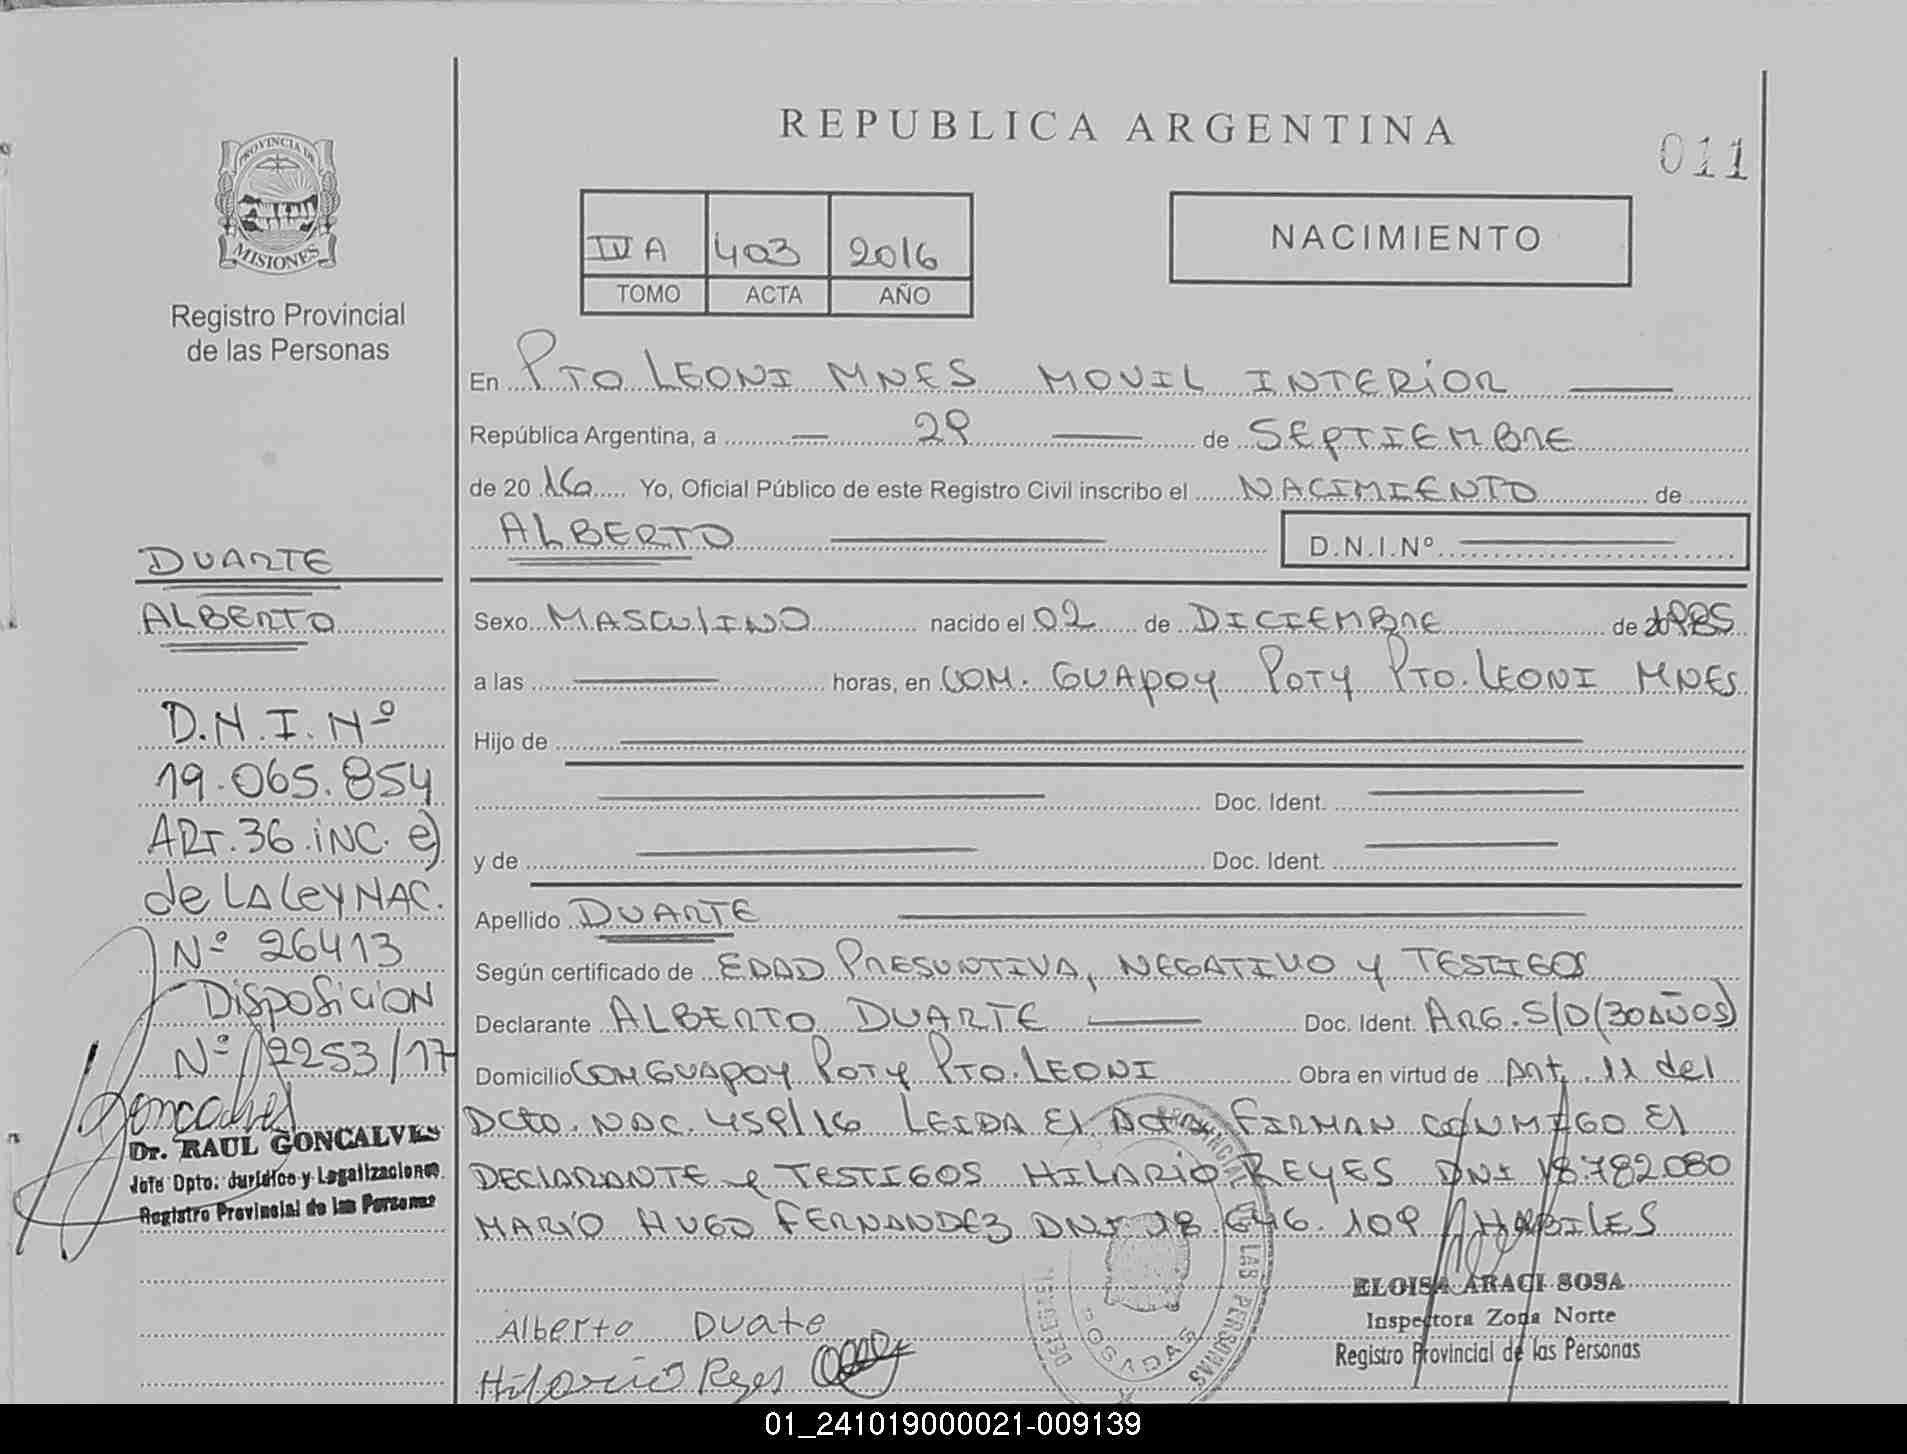 REPUBLICA ARGENTINA
011
PROVINCIA DE
MISIONES
Registro Provincial
de las Personas
IV A 403 2016
TOMO ACTA AÑO
NACIMIENTO
En PTO LEONI MNES MOVIL INTERIOR
República Argentina, a 29 de SEPTIEMBRE
de 20 16 Yo, Oficial Público de este Registro Civil inscribo el NACIMIENTO de
ALBERTO D.N.I.Nº
Sexo MASCULINO nacido el 02 de DICIEMBRE de 1985
a las horas, en COM. GUAPOY POTY PTO. LEONI MNES
Hijo de
Doc. Ident.
y de Doc. Ident.
Apellido DUARTE
Según certificado de EDAD PRESUNTIVA, NEGATIVO y TESTIGOS
Declarante ALBERTO DUARTE Doc. Ident. ARG. S/D (30 AÑOS)
Domicilio COM GUAPOY POTY PTO. LEONI Obra en virtud de Art. 11 del
DCTO. NAC. 459/16 LEIDA El ACTA FIRMAN CONMIGO El
DECLARANTE y TESTIGOS HILARIO REYES DNI 18.782.080
MARIO HUGO FERNANDEZ DNI 18.646.109 HABILES
ELOISA ARACI SOSA
Inspectora Zona Norte
Registro Provincial de las Personas
Alberto Duate
Hilario Reyes
POSADAS
DUARTE
ALBERTO
D.N.I. Nº
19.065.854
ART. 36 iNC. e)
de LA Ley NAC.
Nº 26413
DISPOSICION
Nº 2253/17
Goncalves
Dr. RAUL GONCALVES
Jefe Dpto. Jurídico y Legalizaciones
Registro Provincial de las Personas
01_241019000021-009139